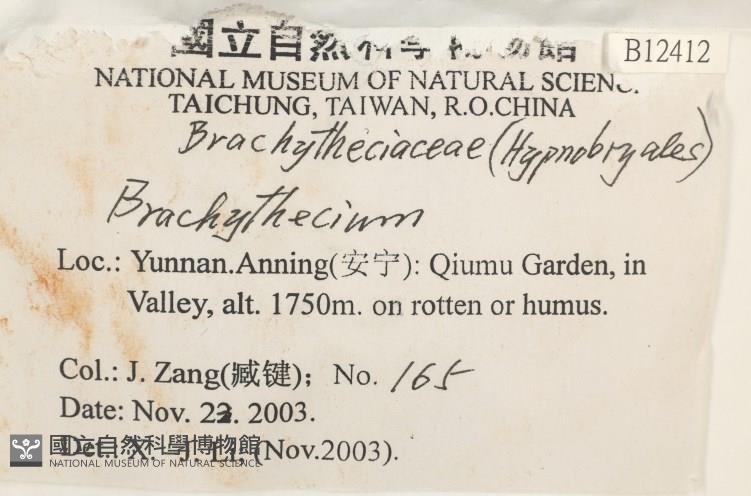 國立自然科學博物館
B12412
NATIONAL MUSEUM OF NATURAL SCIENC.
TAICHUNG, TAIWAN, R.O.CHINA
Brachytheciaceae (Hypnobryales)
Brachythecium
Loc.: Yunnan.Anning(安宁): Qiumu Garden, in
Valley, alt. 1750m. on rotten or humus.
Col.: J. Zang(臧键); No. 165
Date: Nov. 2. 2003.
Det.: X. -J. Li, (Nov.2003).
國立自然科學博物館
NATIONAL MUSEUM OF NATURAL SCIENCE